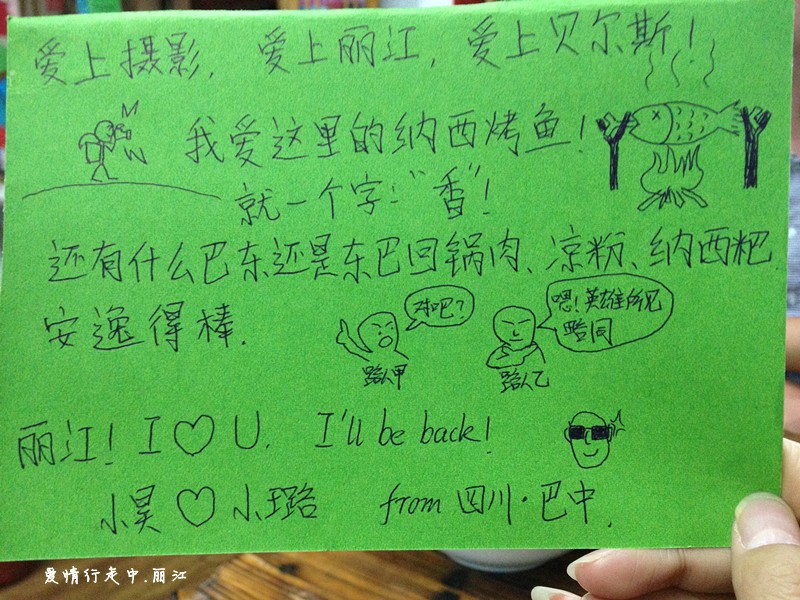 爱上摄影，爱上丽江，爱上贝尔斯！
我爱这里的纳西烤鱼！
就一个字！“香”！
还有什么巴东还是东巴回锅肉、凉粉、纳西粑
安逸得棒.
对吧？
嗯！英雄所见
略同
路人甲
路人乙
丽江！I ♡ U. I'll be back!
小昊 ♡ 小璐 from 四川·巴中.
爱情行走中.丽江